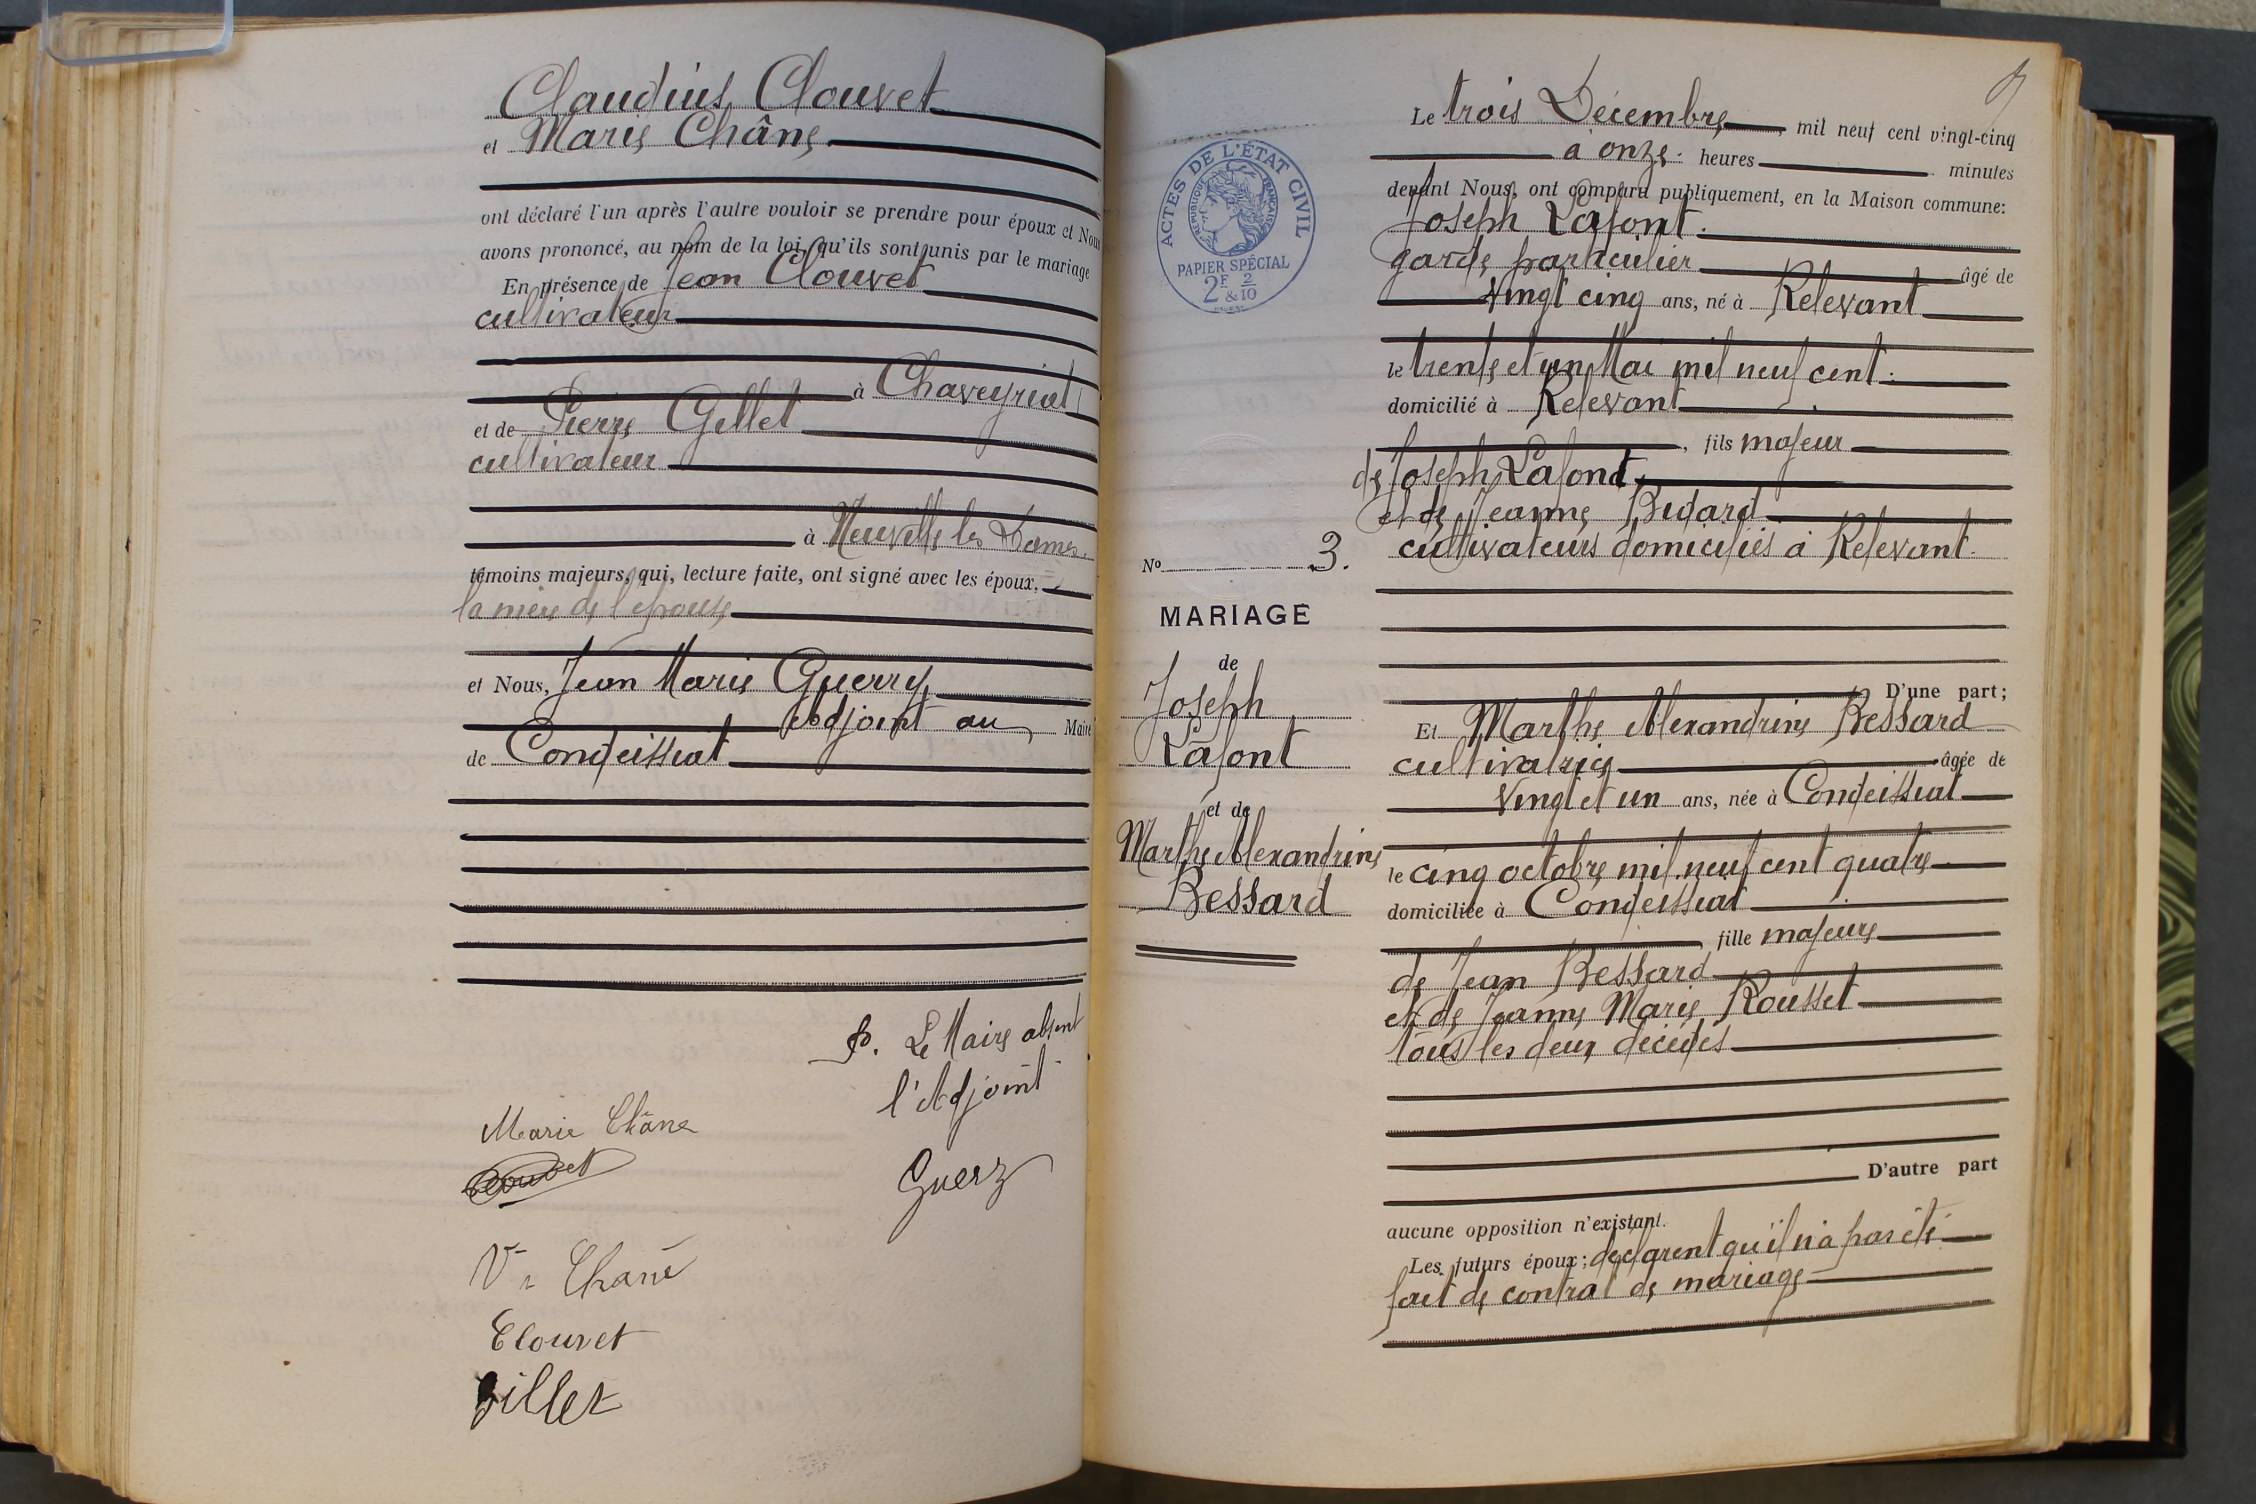 Claudius Clouvet
et Marie Châne
ont déclaré l'un après l'autre vouloir se prendre pour époux et Nous
avons prononcé, au nom de la loi, qu'ils sont unis par le mariage
En présence de Jean Clouvet
cultivateur
à Chaveyriat
et de Pierre Gillet
cultivateur
à Neuville les Dames
témoins majeurs, qui, lecture faite, ont signé avec les époux,
la mère de l'épouse
et Nous, Jean Marie Guerry
Adjoint au Maire
de Condeissiat
P. Le Maire absent
l'Adjoint
Marie Châne
Clouvet
Guerz
Vve Chane
Clouvet
Gillet
ACTES DE L'ÉTAT CIVIL
RÉPUBLIQUE FRANÇAISE
PAPIER SPÉCIAL
2F & 2/10
No 3.
MARIAGE
de
Joseph
Lafont
et de
Marthe Alexandrine
Bessard
Le trois Décembre, mil neuf cent vingt-cinq
à onze heures minutes
devant Nous, ont comparu publiquement, en la Maison commune:
Joseph Lafont
garde particulier âgé de
vingt cinq ans, né à Relevant
le trente et un Mai mil neuf cent
domicilié à Relevant
, fils majeur
de Joseph Lafont
et de Jeanne Bidard
cultivateurs domiciliés à Relevant
D'une part;
Et Marthe Alexandrine Bessard
cultivatrice âgée de
vingt et un ans, née à Condeissiat
le cinq octobre mil neuf cent quatre
domiciliée à Condeissiat
, fille majeure
de Jean Bessard
et de Jeanne Marie Rousset
tous les deux décédés
D'autre part
aucune opposition n'existant.
Les futurs époux; déclarent qu'il n'a pas été
fait de contrat de mariage